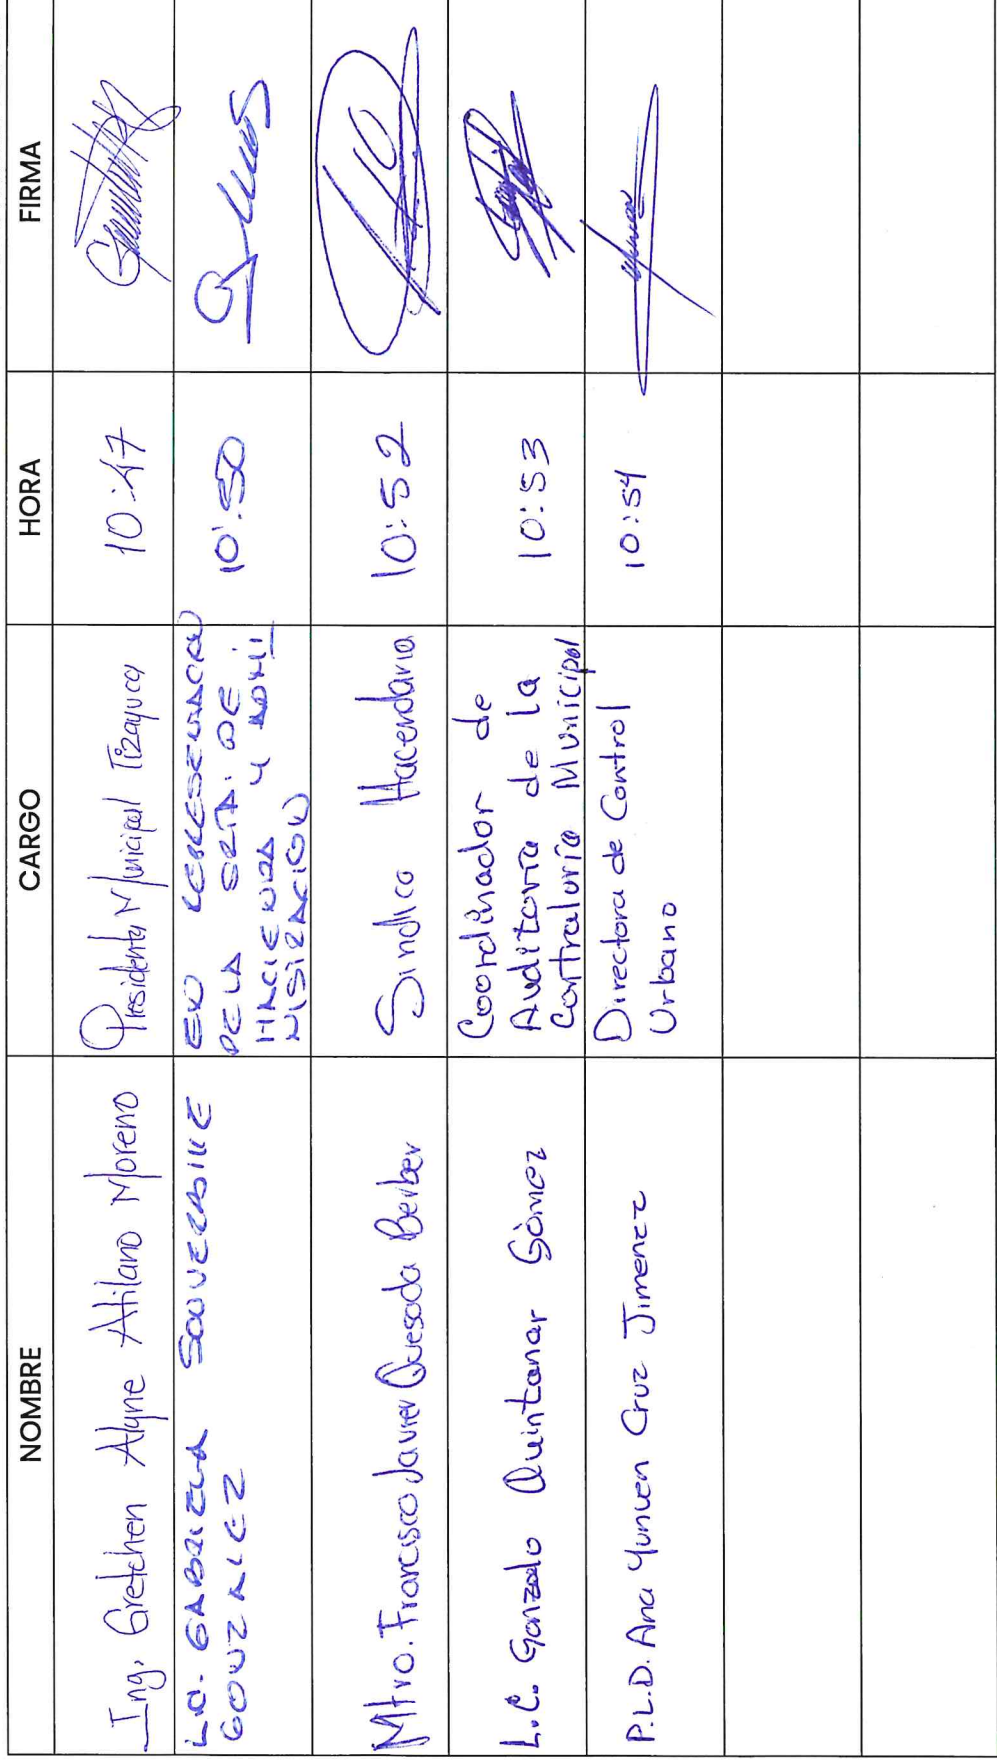 NOMBRE CARGO HORA FIRMA
Ing. Gretchen Alyne Atilano Moreno
Presidenta Municipal Tizayuca
10:47
L.C. GABRIELA
GONZALEZ
EN REPRESENTACION
DE LA SRIA. DE
HACIENDA Y ADMI
NISTRACION
10:50
Mtro. Francisco Javier Quesada Berber
Sindico Hacendario
10:52
L.C. Gonzalo Quintanar Gómez
Coordinador de
Auditoría de la
Contraloría Municipal
10:53
P.L.D. Ana Yunuen Cruz Jimenez
Directora de Control
Urbano
10:54